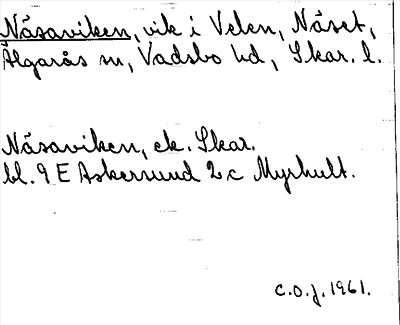 Näsaviken, vik i Velen, Näset,
Älgarås sn, Vadsbo hd, Skar. l.
Näsaviken, ek. Skar.
bl. 9 E Askersund 2 c Myrhult.
C.O.J. 1961.